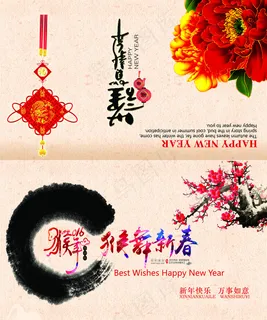 HAPPY
NEW YEAR
HAPPY NEW YEAR
Happy new year to you.
spring story in the bud, cool summer anticipation
The autumn leaves have gone far, the winter has come
2016
猴年
猴舞新春
Best Wishes Happy New Year
新年快乐 万事如意
XINNIANKUAILE WANSHIRUYI